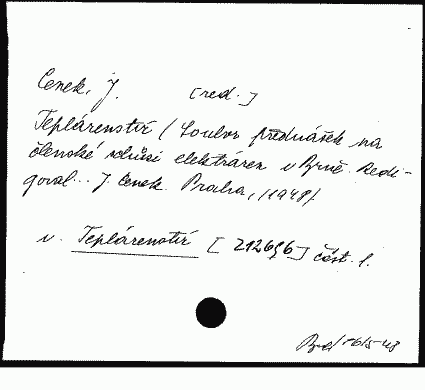 Cenek, J. [red.]
Teplárenství / Soubor přednášek na
členské schůzi elektráren v Brně. Redi-
goval.. J. Cenek. Praha, /1948/
v. Teplárenství [212696] část. 1.